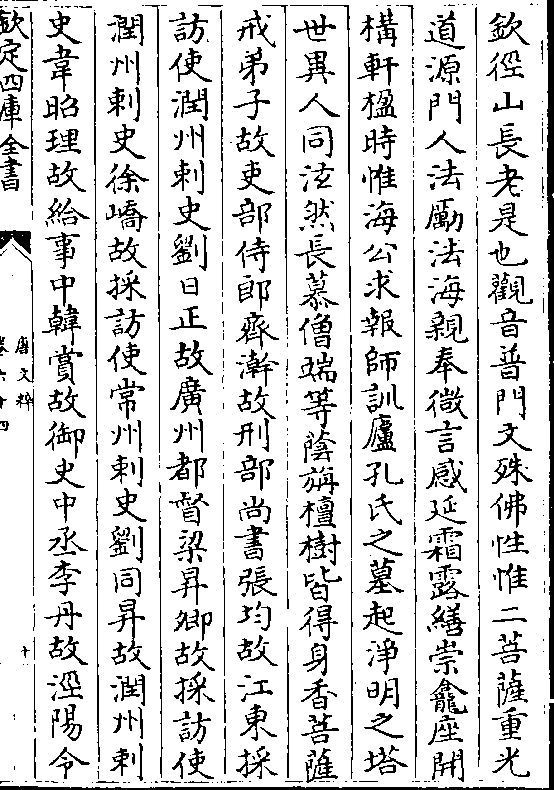 欽徑山長老是也觀音普門文殊佛性惟二菩薩重光
道源門人法勵法海親奉微言感延霜露繕崇龕座開
構軒楹時惟海公求報師訓廬孔氏之墓起淨明之塔
世異人同泫然長慕僧端等蔭旃檀樹皆得身香菩薩
戒弟子故吏部侍郎齊澣故刑部尚書張均故江東採
訪使潤州刺史劉日正故廣州都督梁昇卿故採訪使
潤州刺史徐嶠故採訪使常州刺史劉同昇故潤州刺
史韋昭理故給事中韓賞故御史中丞李丹故涇陽令
欽定四庫全書
唐文粹
卷六十四
十